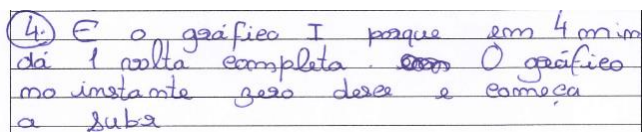 4. E o gráfico I porque em 4 min
dá 1 volta completa. O gráfico
no instante zero desce e começa
a subir